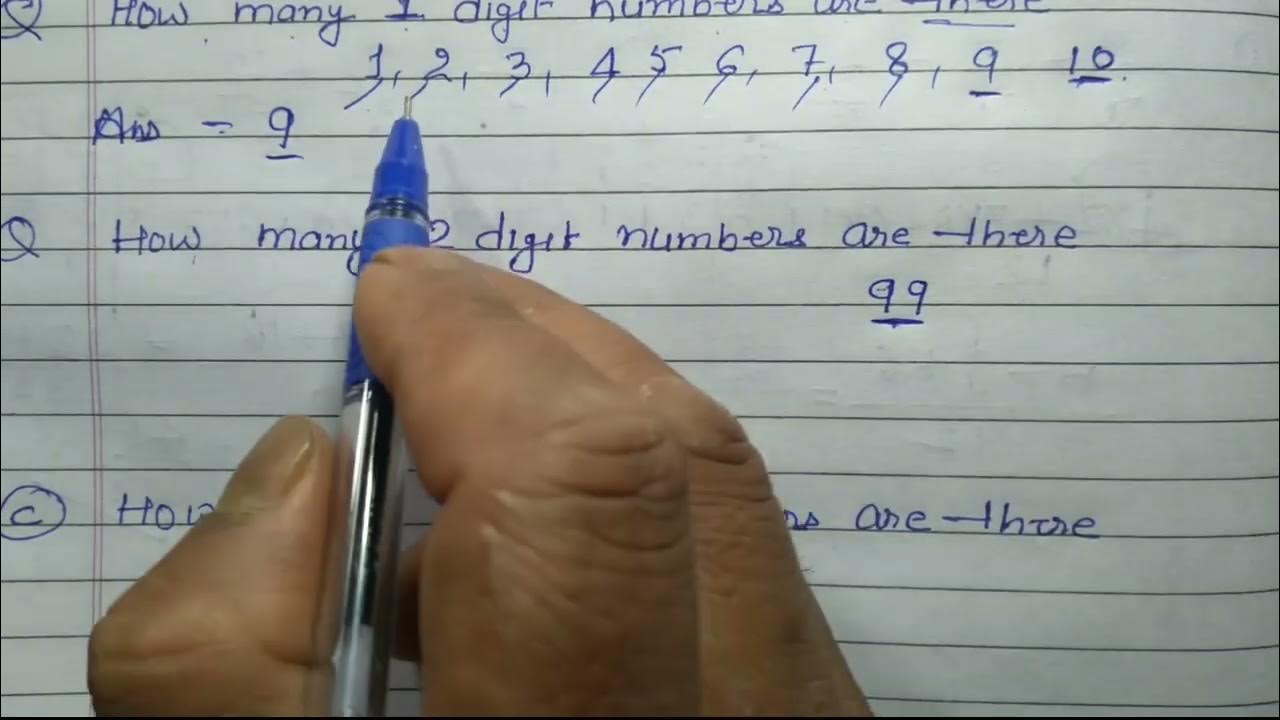 Q How many 1 digit numbers are there
1, 2, 3, 4 5 6, 7, 8, 9 10
Ans - 9
Q How many 2 digit numbers are there
99
C How are there